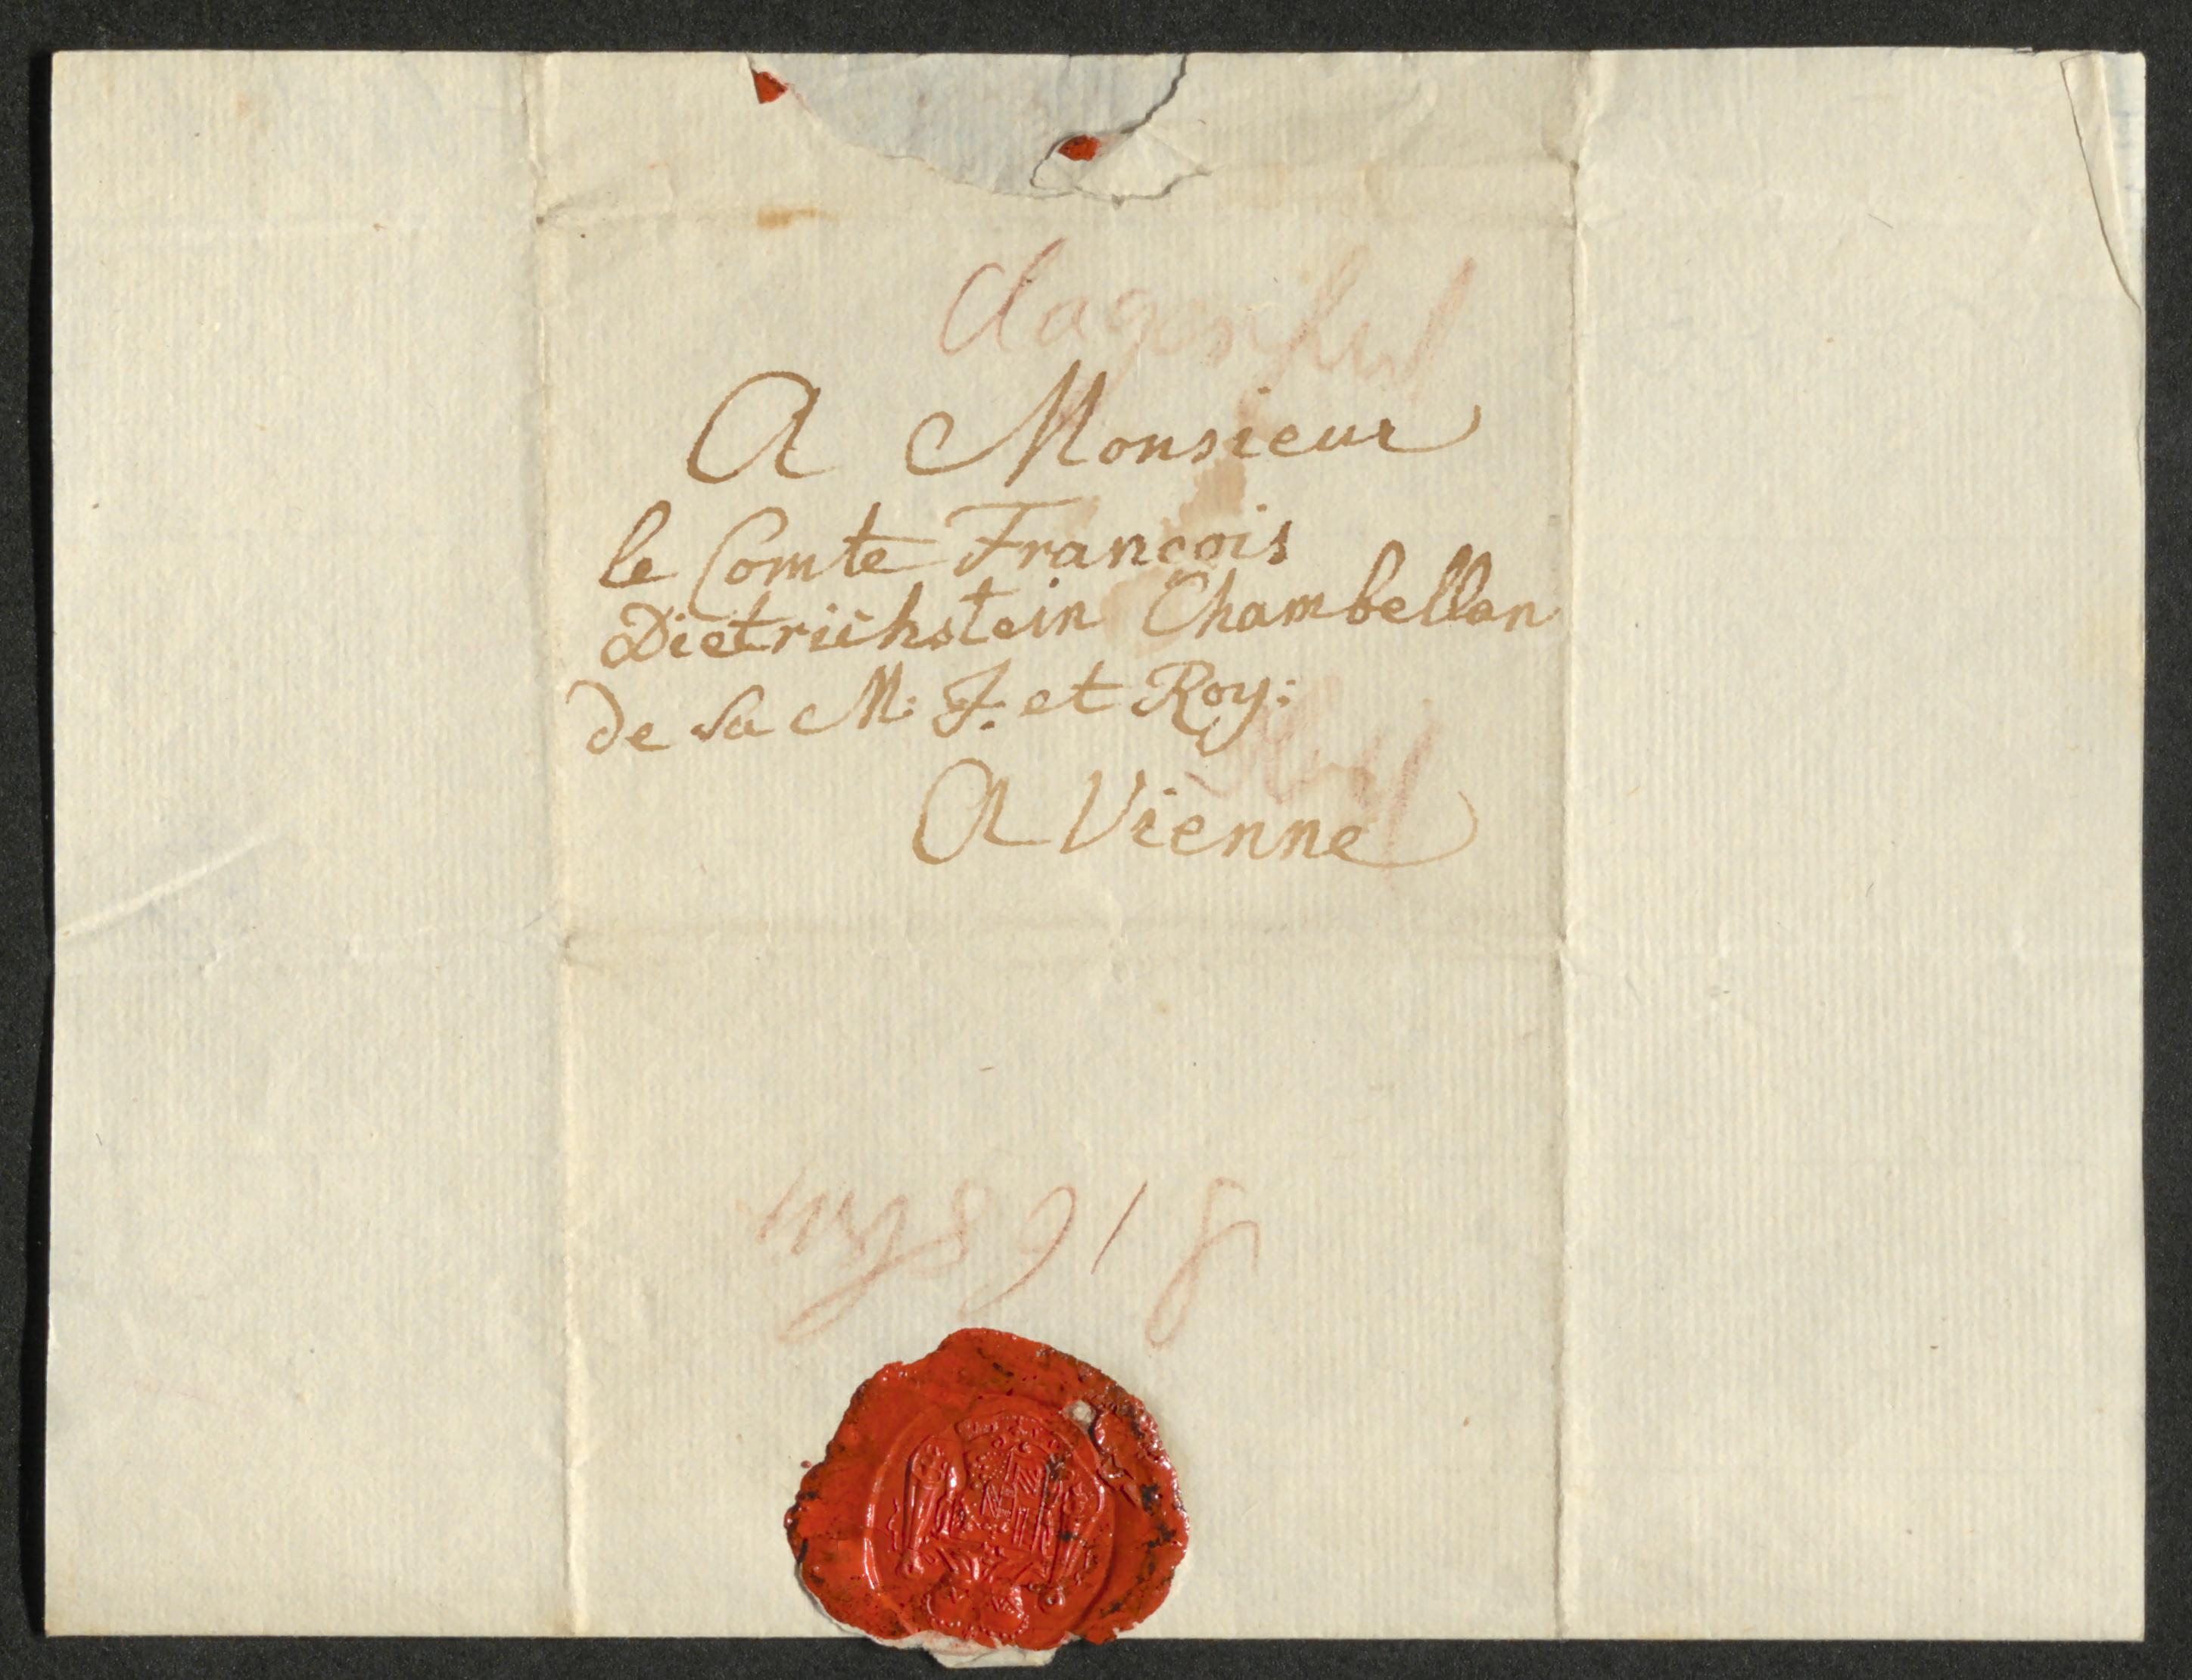 Clagenfurt
A Monsieur
le Comte François
Dietrichstein Chambellan
de Sa M: I: et Roy:
A Vienne